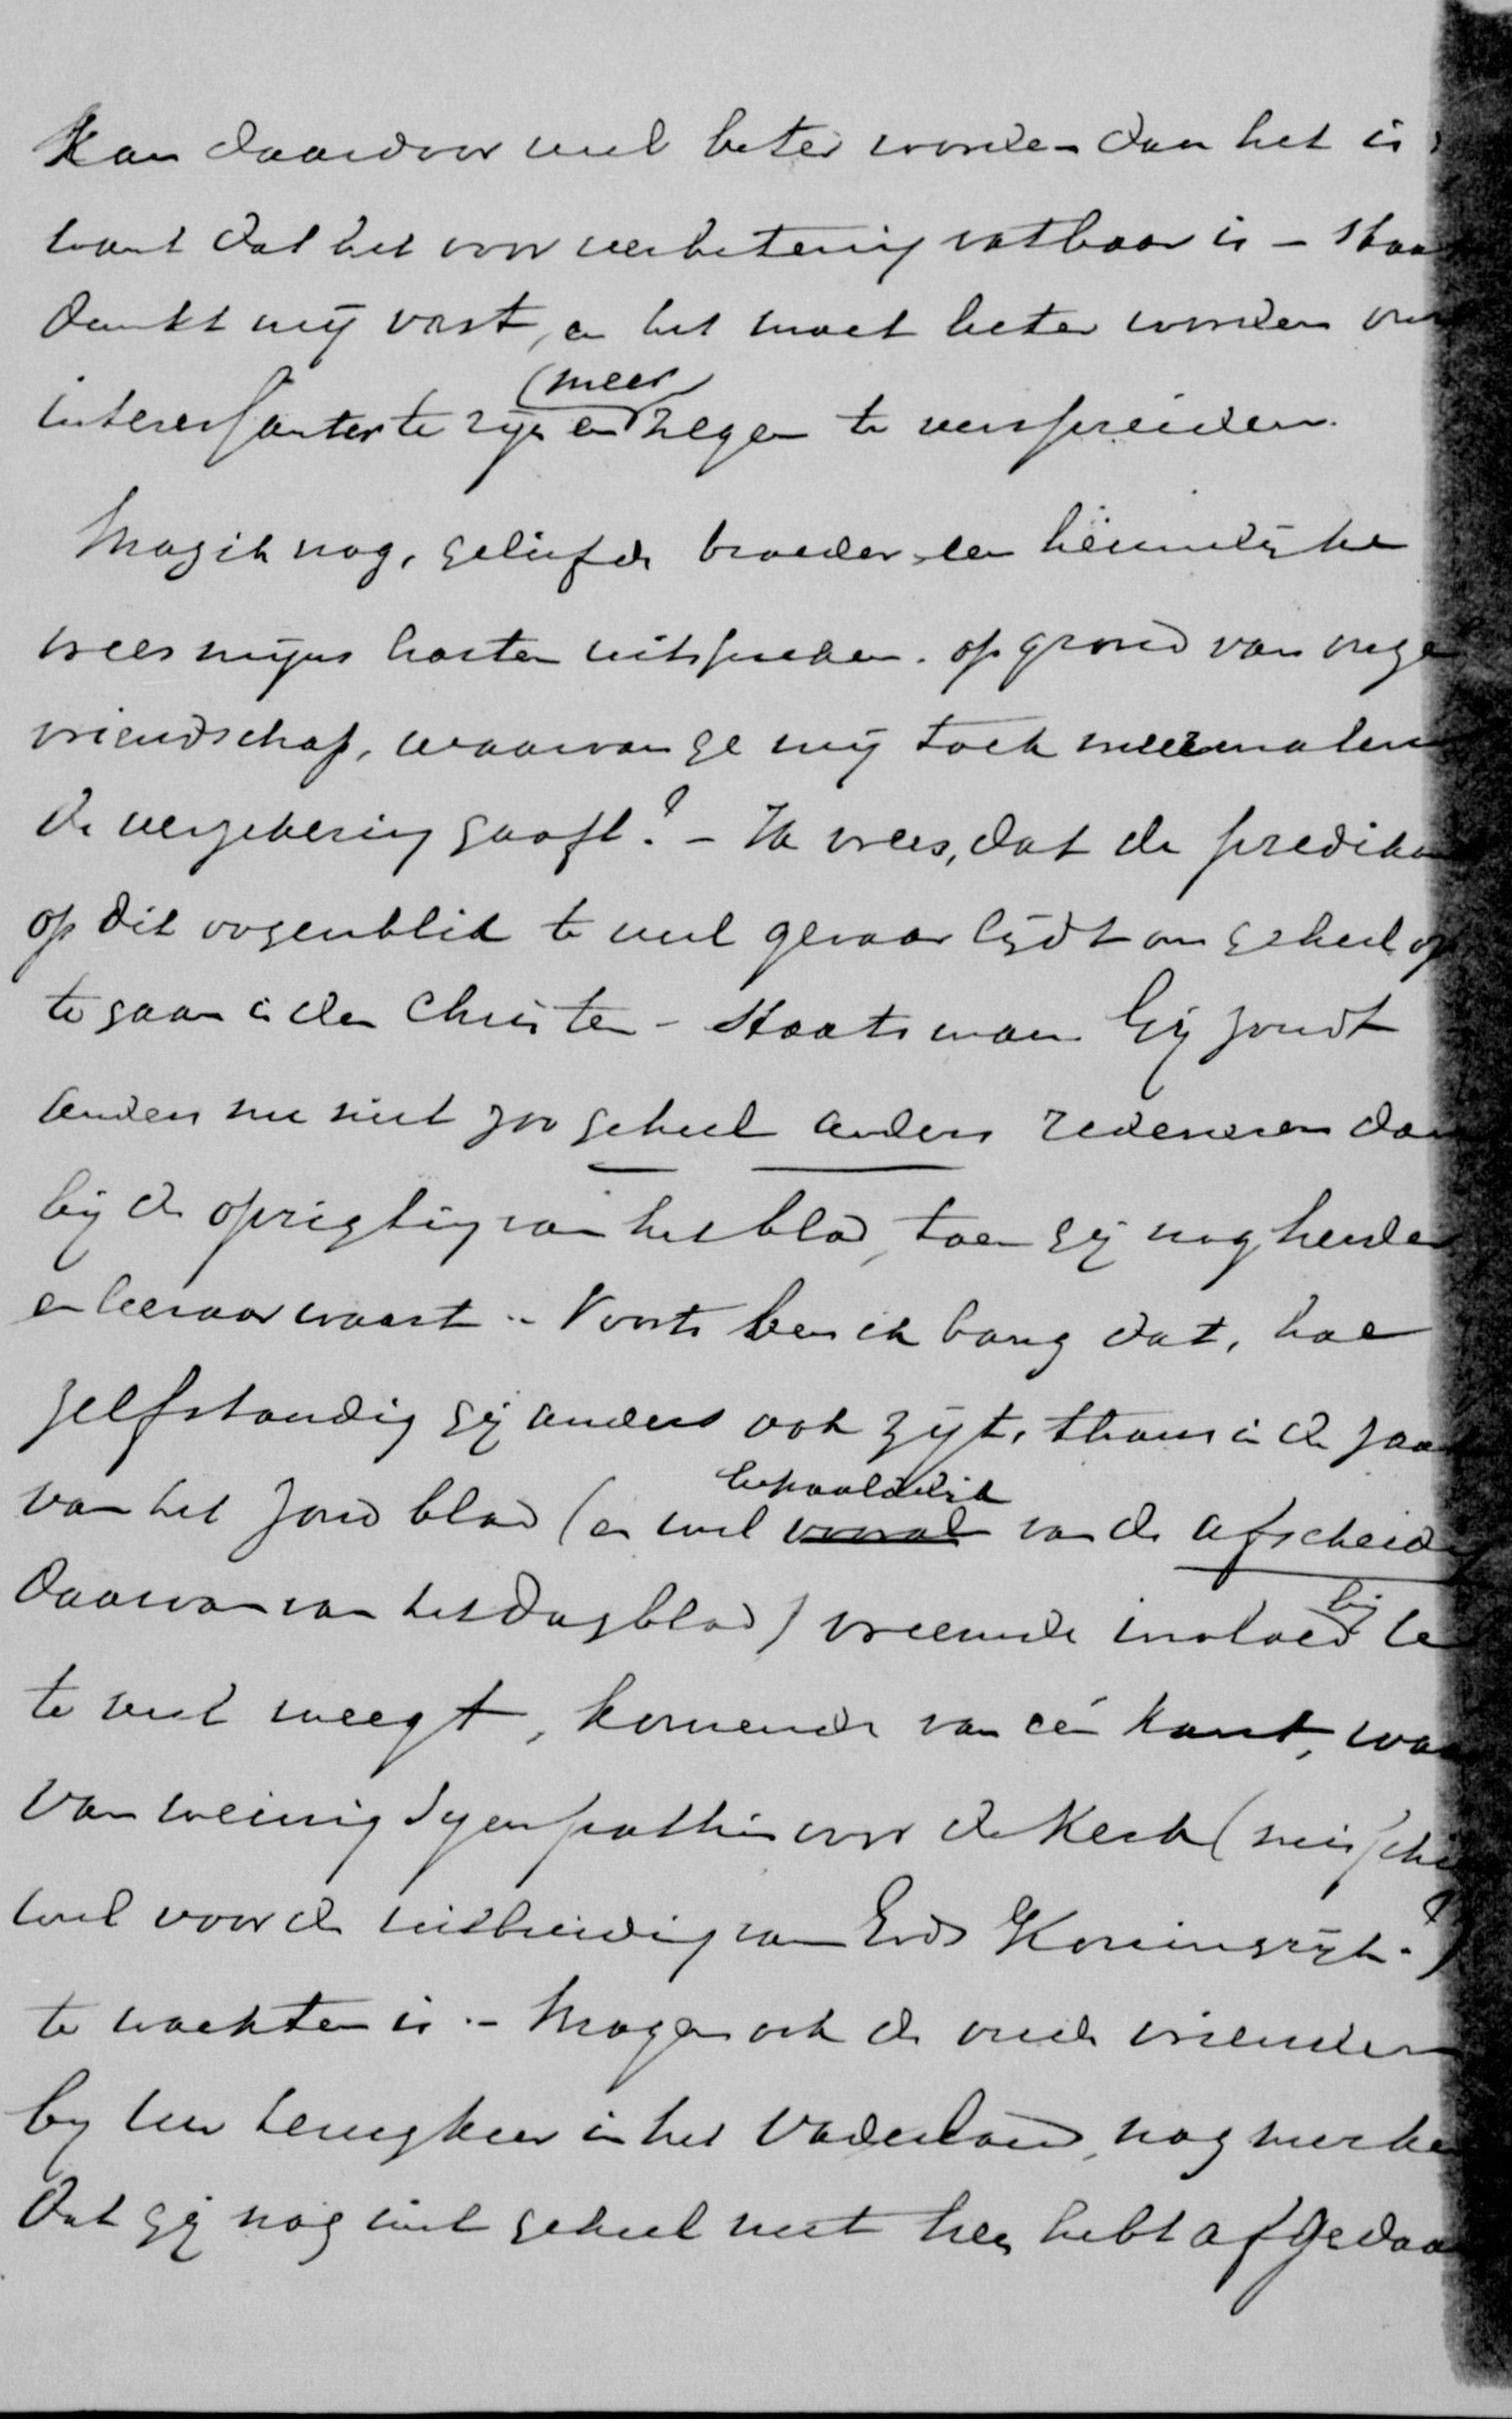 Kan daardoor veel beter worden dan het is;
want dat het voor verbetering vatbaar is – staat
dunkt mij vast, en het moet beter worden om
interessanter te zijn en (meer) zegen te verspreiden.
Mag ik nog, geliefde broeder, een heimelijke
vrees mijns harten uitspreken. op grond van onze
vriendschap, waarvan ge mij toch meermalen
de verzekering gaaft? – Ik vrees, dat de predikan
op dit oogenblik te veel gevaar lijdt om geheel op
te gaan in den Christen – Staatsman. Gij zoudt
anders nu niet zoo geheel anders redeneren dan
bij de oprigting van het blad, toen gij nog herder
en leeraar waart. – Voorts ben ik bang dat, hoe
zelfstandig gij anders ook zijt, thans in de zaak
van het Zond blad (en wel vooral bepaaldelijk van de afscheid
daarvan van het Dagblad) vreemde invloed bij
te veel weegt, komende van één kant, waar
van weinig sympathie voor de Kerk (misschi
wel voor de uitbreiding van Gods Koningrijk?)
te wachten is. – Mogen ook de oude vrienden
by hun terugkeer in het Vaderland, nog merken
dat gij nog niet geheel met hen hebt afgedaa